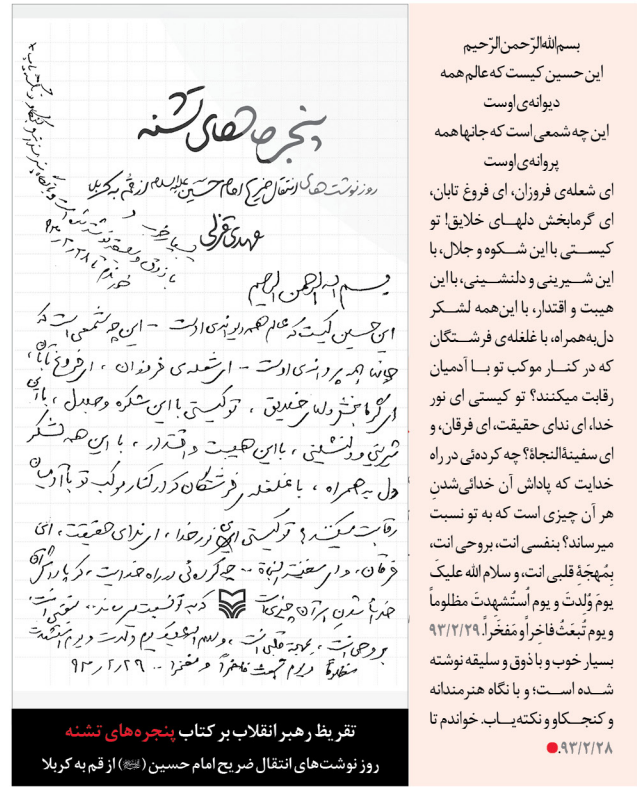 بسم‌الله‌الرّحمن‌الرّحیم
این حسین کیست که عالم همه
دیوانه‌ی اوست
این چه شمعی است که جانها همه
پروانه‌ی اوست
ای شعله‌ی فروزان، ای فروغ تابان،
ای گرمابخش دلهـای خلایق! تو
کیسـتی با این شـکوه و جلال، با
این شـیرینی و دلنشـینی، با این
هیبت و اقتدار، با این‌همه لشـکر
دل به‌همراه، با غلغله‌ی فرشـتگان
که در کنـار موکب تو بـا آدمیان
رقابت میکنند؟ تو کیستی ای نور
خدا، ای ندای حقیقت، ای فرقان، و
ای سفینةالنجاة؟ چه کرده‌ئی در راه
خدایت که پاداش آن خدائی‌شدنِ
هر آن چیزی است که به تو نسبت
میرساند؟ بنفسی انت، بروحی انت،
بِمُهجَةِ قلبی انت، و سلام الله علیکَ
یومَ وُلِدتَ و یوم اُستُشهِدتَ مظلوماً
و یوم تُبعَثُ فاخِراً و مَفخَراً. ۹۳/۲/۲۹
بسیار خوب و با ذوق و سلیقه نوشته
شـده اسـت؛ و با نگاه هنرمندانه
و کنجـکاو و نکته‌یـاب. خواندم تا
۹۳/۲/۲۸.
پنجره‌های تشنه
روزنوشت‌های انتقال ضریح امام حسین علیه‌السلام از قم به کربلا
مهدی قزلی
بسیار خوب و
با ذوق و سلیقه نوشته شده است و با نگاه هنرمندانه و کنجکاو و نکته‌یاب
خواندم تا ۹۳/۲/۲۸
بسم الله الرحمن الرحیم
این حسین کیست که عالم همه دیوانه‌ی اوست - این چه شمعی است که
جانها همه پروانه‌ی اوست - ای شعله‌ی فروزان، ای فروغ تابان،
ای گرمابخش دلهای خلایق، تو کیستی با این شکوه و جلال، با این
شیرینی و دلنشینی، با این هیبت و اقتدار، با این همه لشکر
دل به همراه، با غلغله‌ی فرشتگان که در کنار موکب تو با آدمیان
رقابت میکنند؟ تو کیستی ای نور خدا، ای ندای حقیقت، ای
فرقان، و ای سفینة النجاة - چه کرده‌ئی در راه خدایت، که پاداش آن
خدائی شدنِ هر آن چیزی است که به تو نسبت میرساند.. بنفسی انت،
بروحی انت، بمهجة قلبی انت، و سلام الله علیک یوم ولدت و یوم استشهدت
مظلوماً و یوم تبعث فاخراً و مفخراً - ۹۳/۲/۲۹
تقریظ رهبر انقلاب بر کتاب پنجره‌های تشنه
روز نوشت‌های انتقال ضریح امام حسین (علیه‌السلام) از قم به کربلا